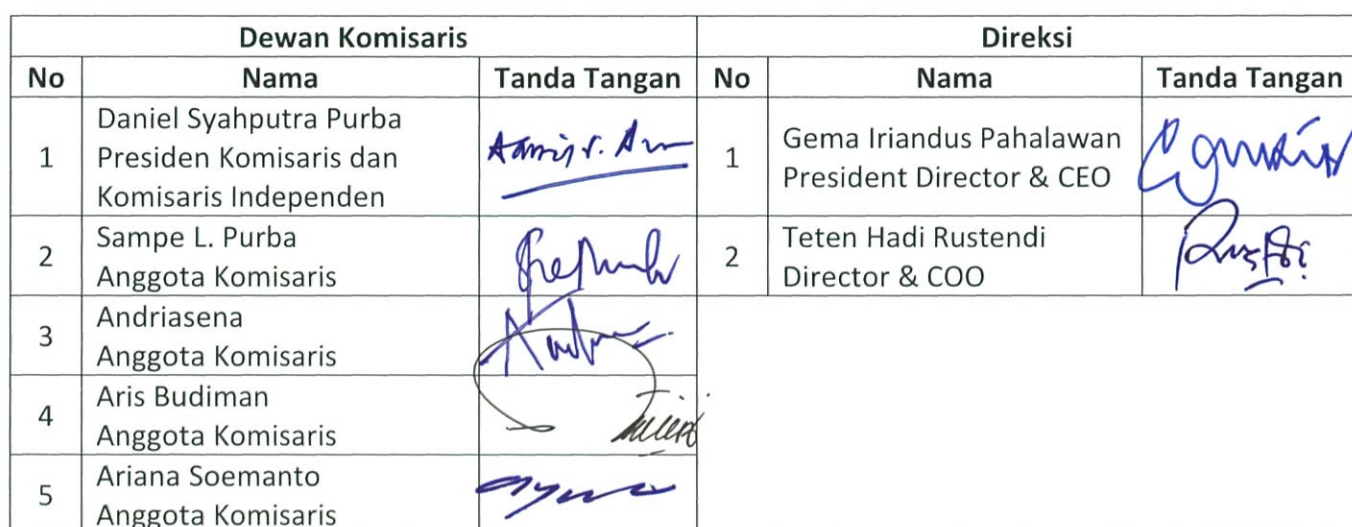 Dewan Komisaris Direksi
No Nama Tanda Tangan No Nama Tanda Tangan
1 Daniel Syahputra Purba
Presiden Komisaris dan
Komisaris Independen
1 Gema Iriandus Pahalawan
President Director & CEO
2 Sampe L. Purba
Anggota Komisaris
2 Teten Hadi Rustendi
Director & COO
3 Andriasena
Anggota Komisaris
4 Aris Budiman
Anggota Komisaris
5 Ariana Soemanto
Anggota Komisaris